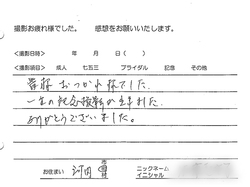 撮影お疲れ様でした。 感想をお願いいたします。
<撮影日時> 年 月 日( )
<撮影項目> 成人 七五三 プライダル 記念 その他
おつかれ様でした。
一生の記念撮影が出来ました。
ありがとうございました。
お住まい 河内 市 町村 ニックネーム
イニシャル